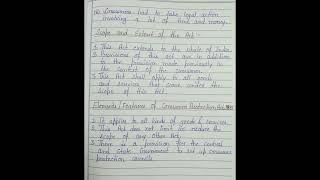 (iv) Consumers had to take legal action
involving a lot of time and money.
Scope and Extent of the Act:-
1. This Act extends to the whole of India.
2. Provisions of this act are in addition
to the provision made previously in
the context of the consumer.
3. This Act shall apply to all goods
and services that come under the
scope of this Act.
Elements/Features of Consumer Protection Act, 1986
1. It applies to all kinds of goods & services.
2. This Act does not limit or reduce the
scope of any other Act.
3. There is a provision for the Central
and State Government to set up consumer
protection councils